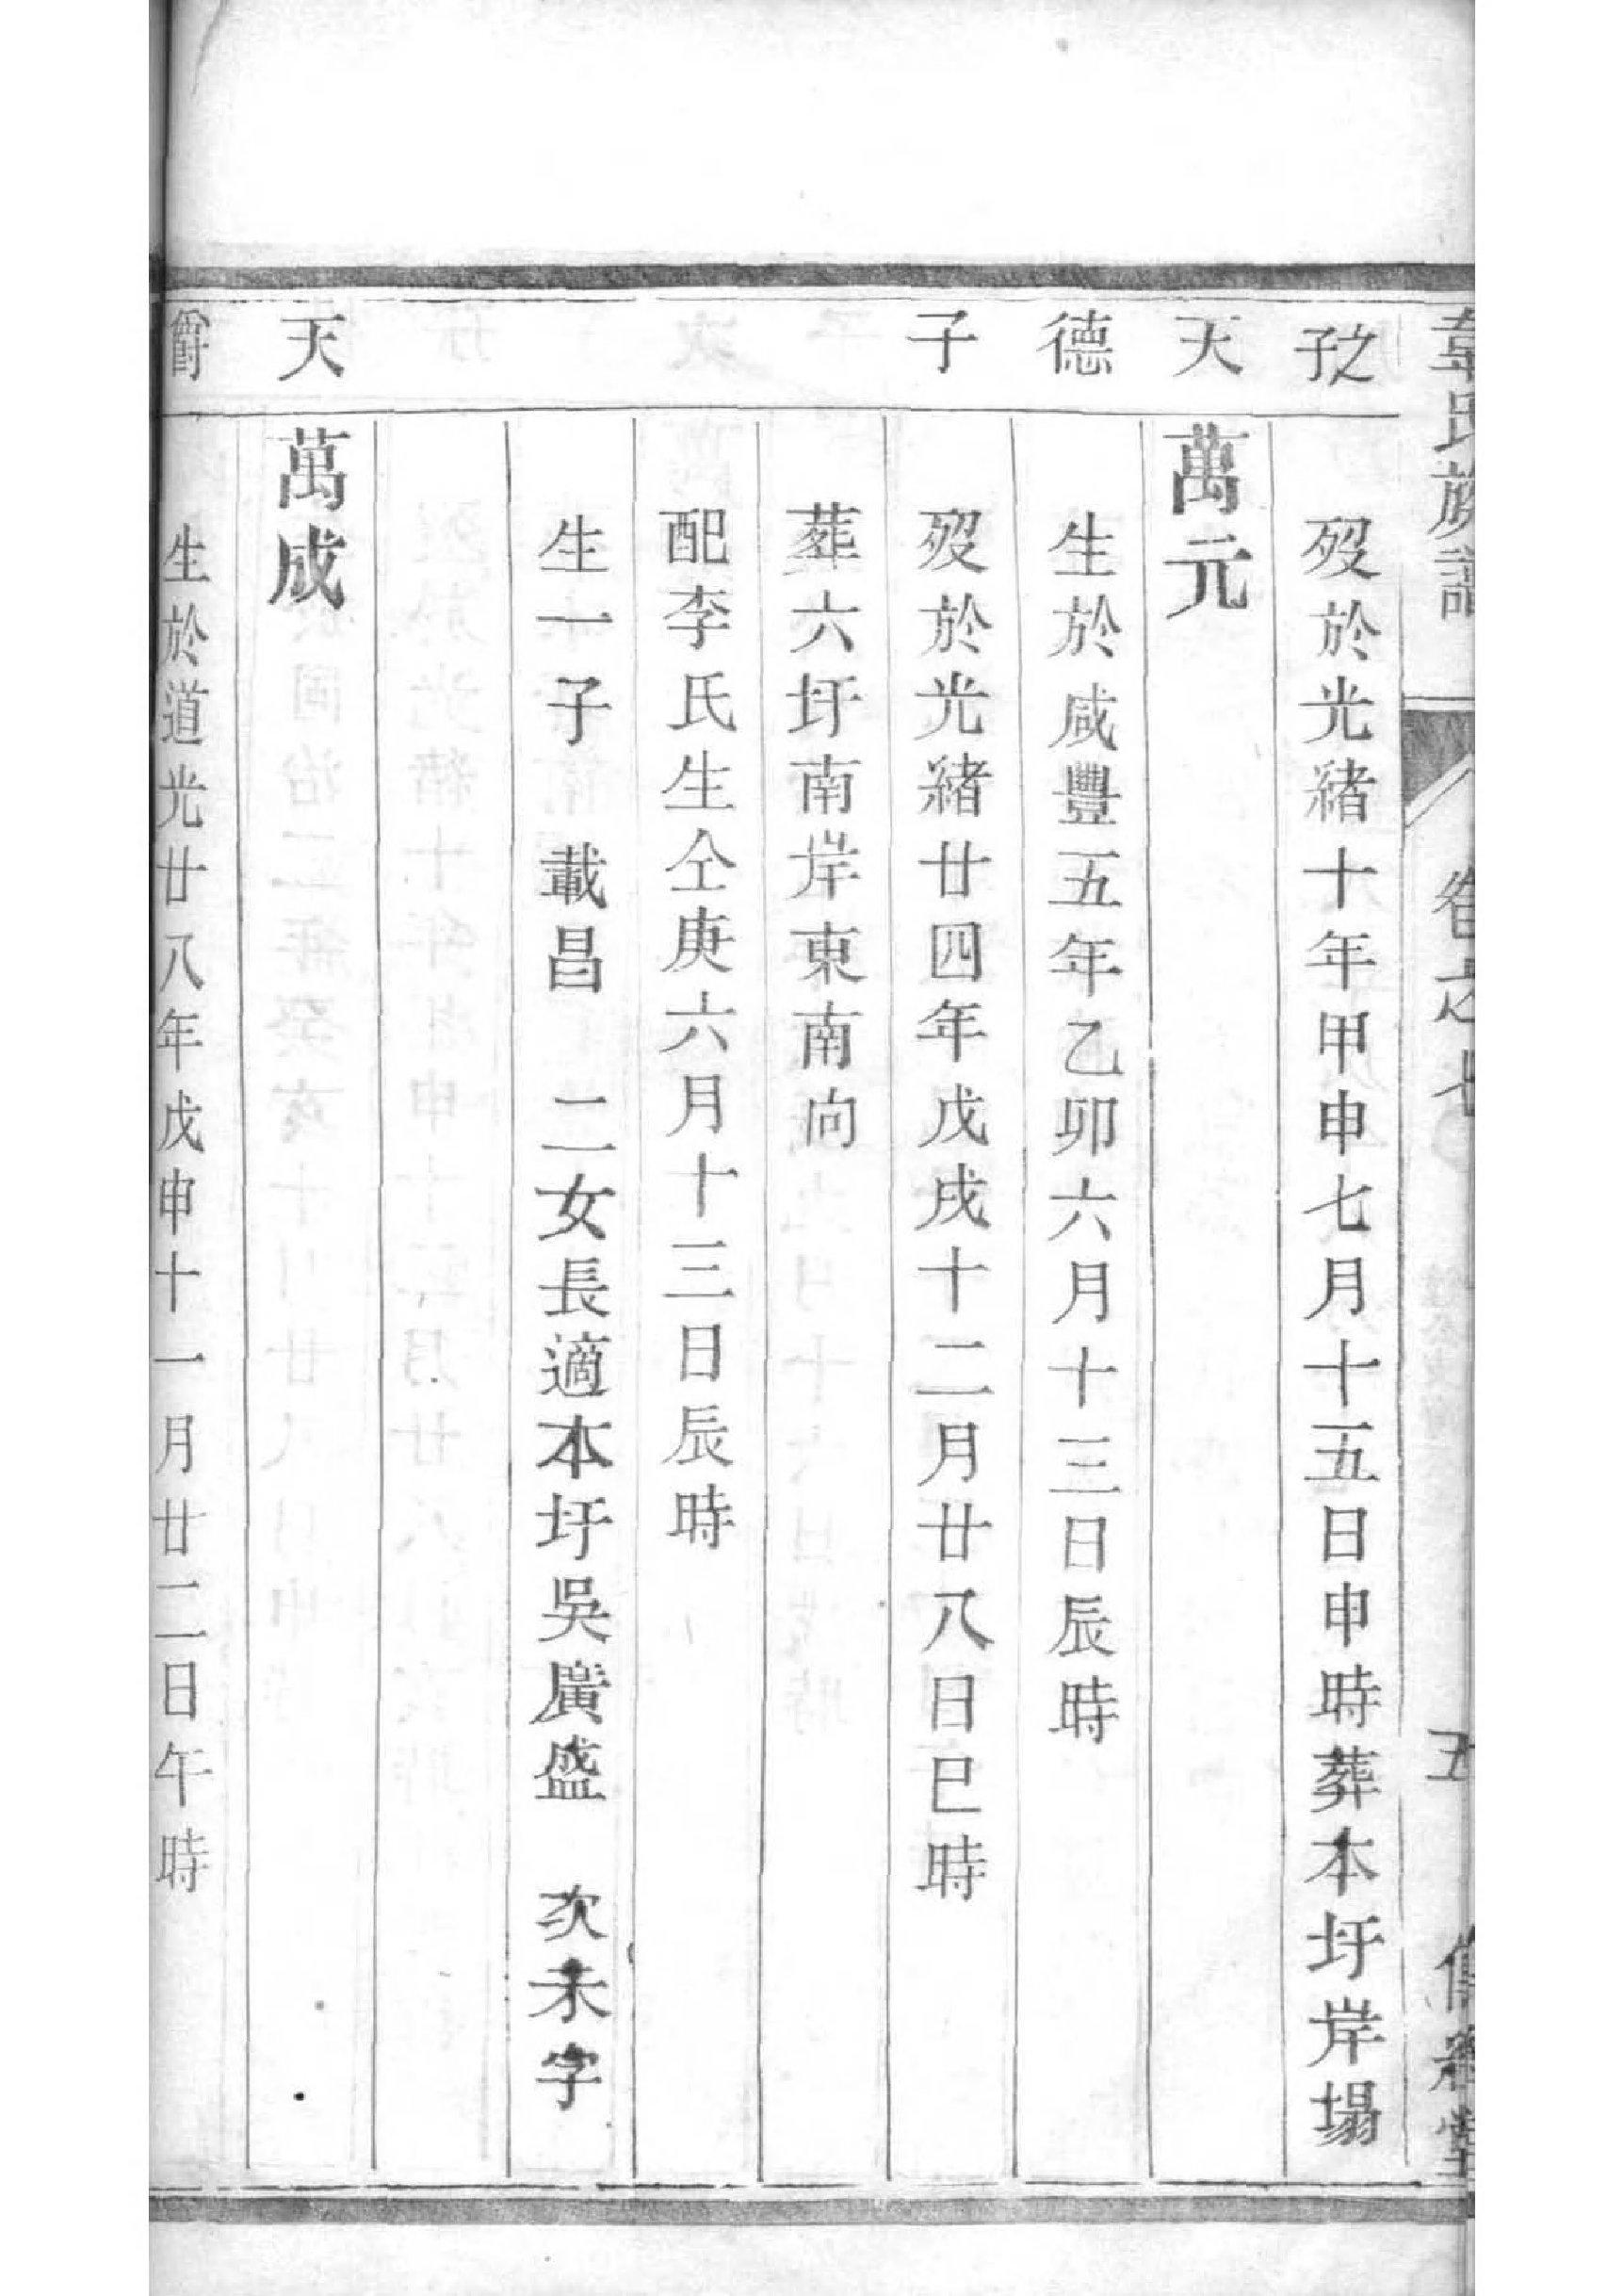 韋氏族譜 卷之七 五 傳經堂
之子
歿於光緒十年甲申七月十五日申時葬本圩岸塌
天
萬元
德
生於咸豐五年乙卯六月十三日辰時
子
歿於光緒廿四年戊戌十二月廿八日巳時
葬六圩南岸東南向
配李氏生仝庚六月十三日辰時
生一子 載昌 二女長適本圩吳廣盛 次未字
天
萬成
爵
生於道光廿八年戊申十一月廿二日午時